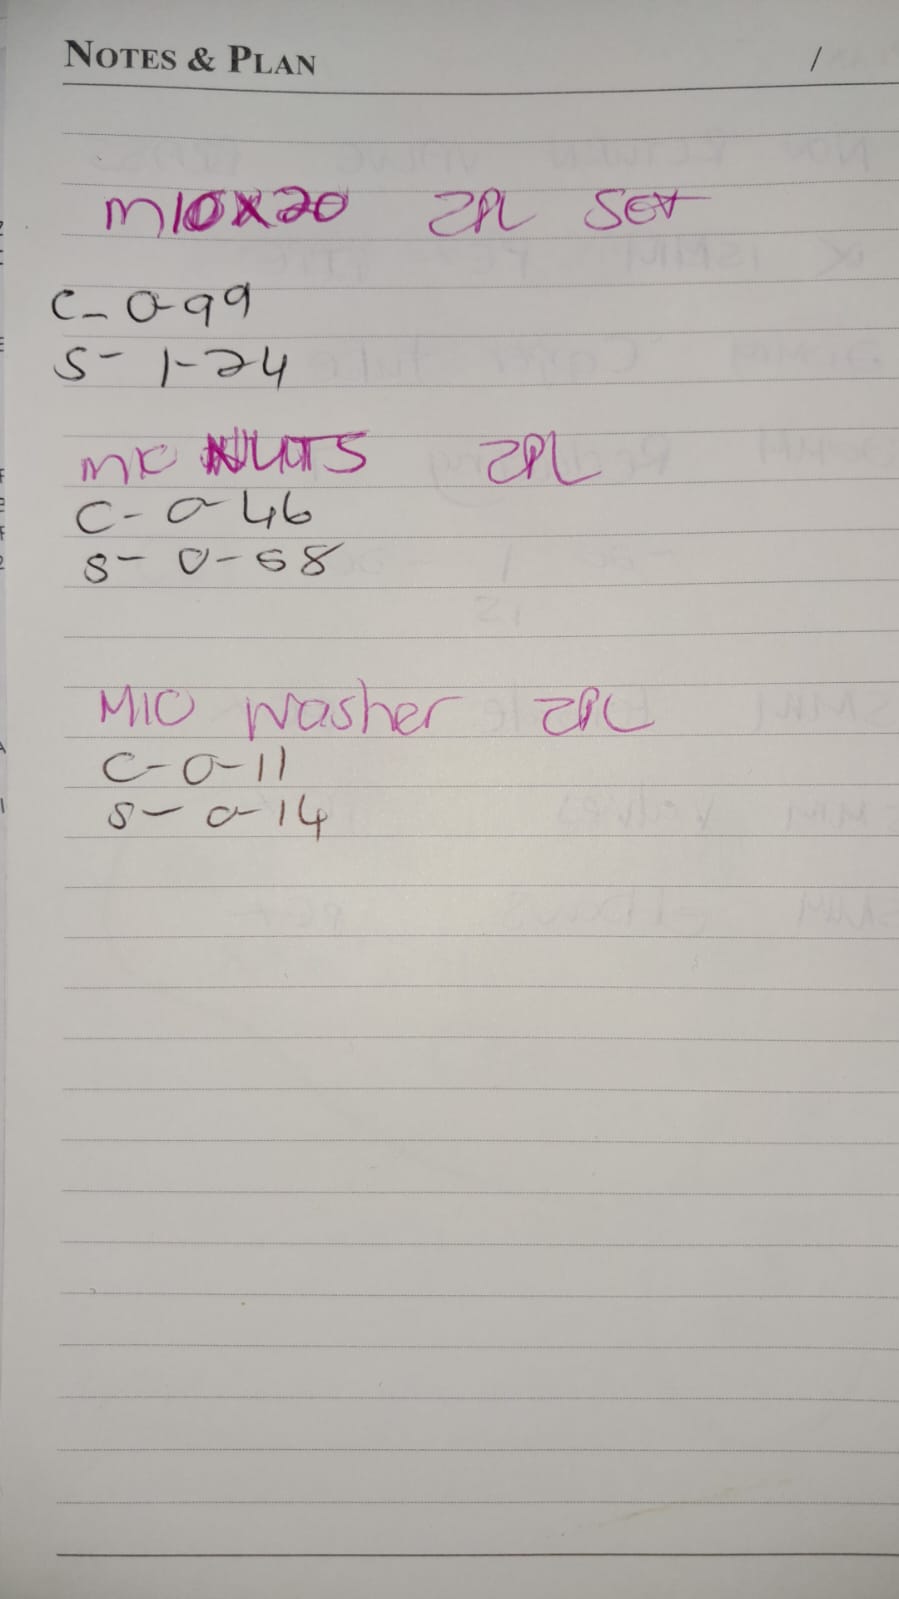 NOTES & PLAN /
M10x20 ZPL Set
C- 0-99
S- 1-24
M10 NUTS ZPL
C- 0-46
S- 0-58
M10 Washer ZPL
C-0-11
S- 0-14